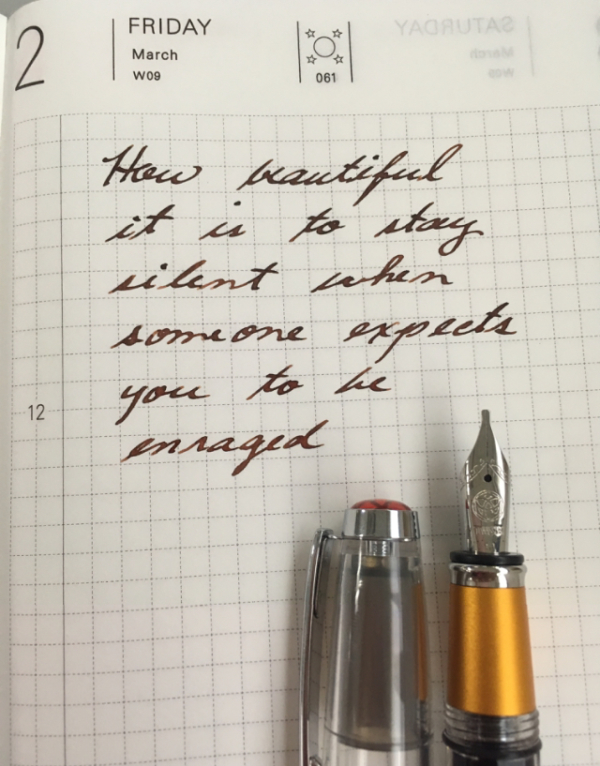 2
FRIDAY
March
W09
061
SATURDAY
March
W09
How beautiful
it is to stay
silent when
someone expects
you to be
enraged
12